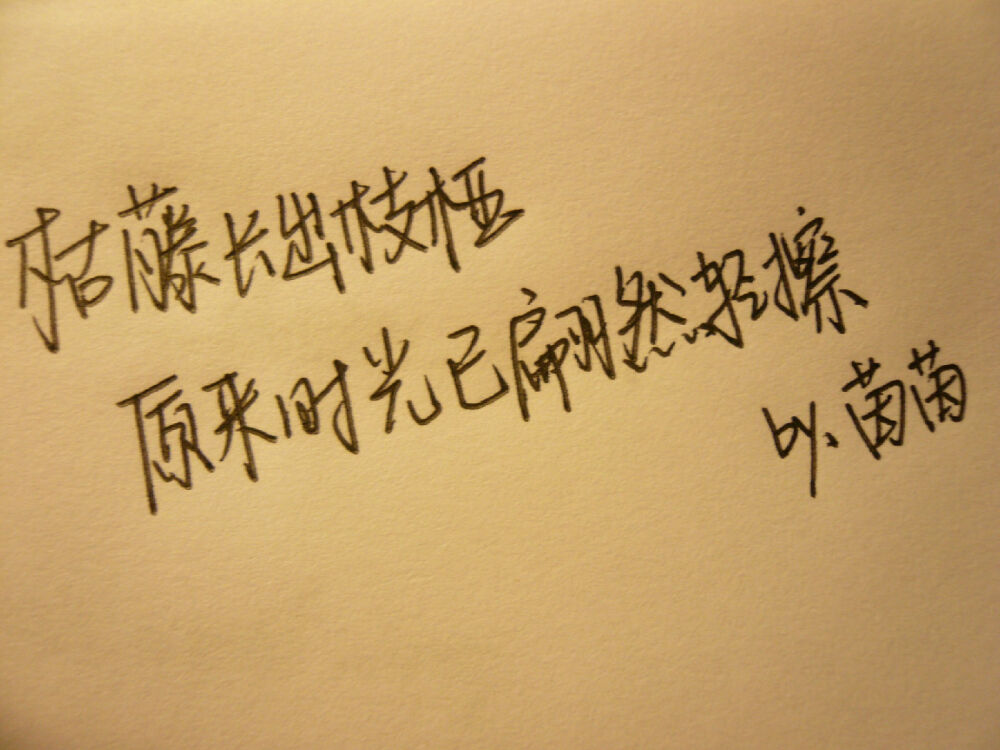 枯藤长出枝桠
原来时光已翩然轻擦
by、茵茵